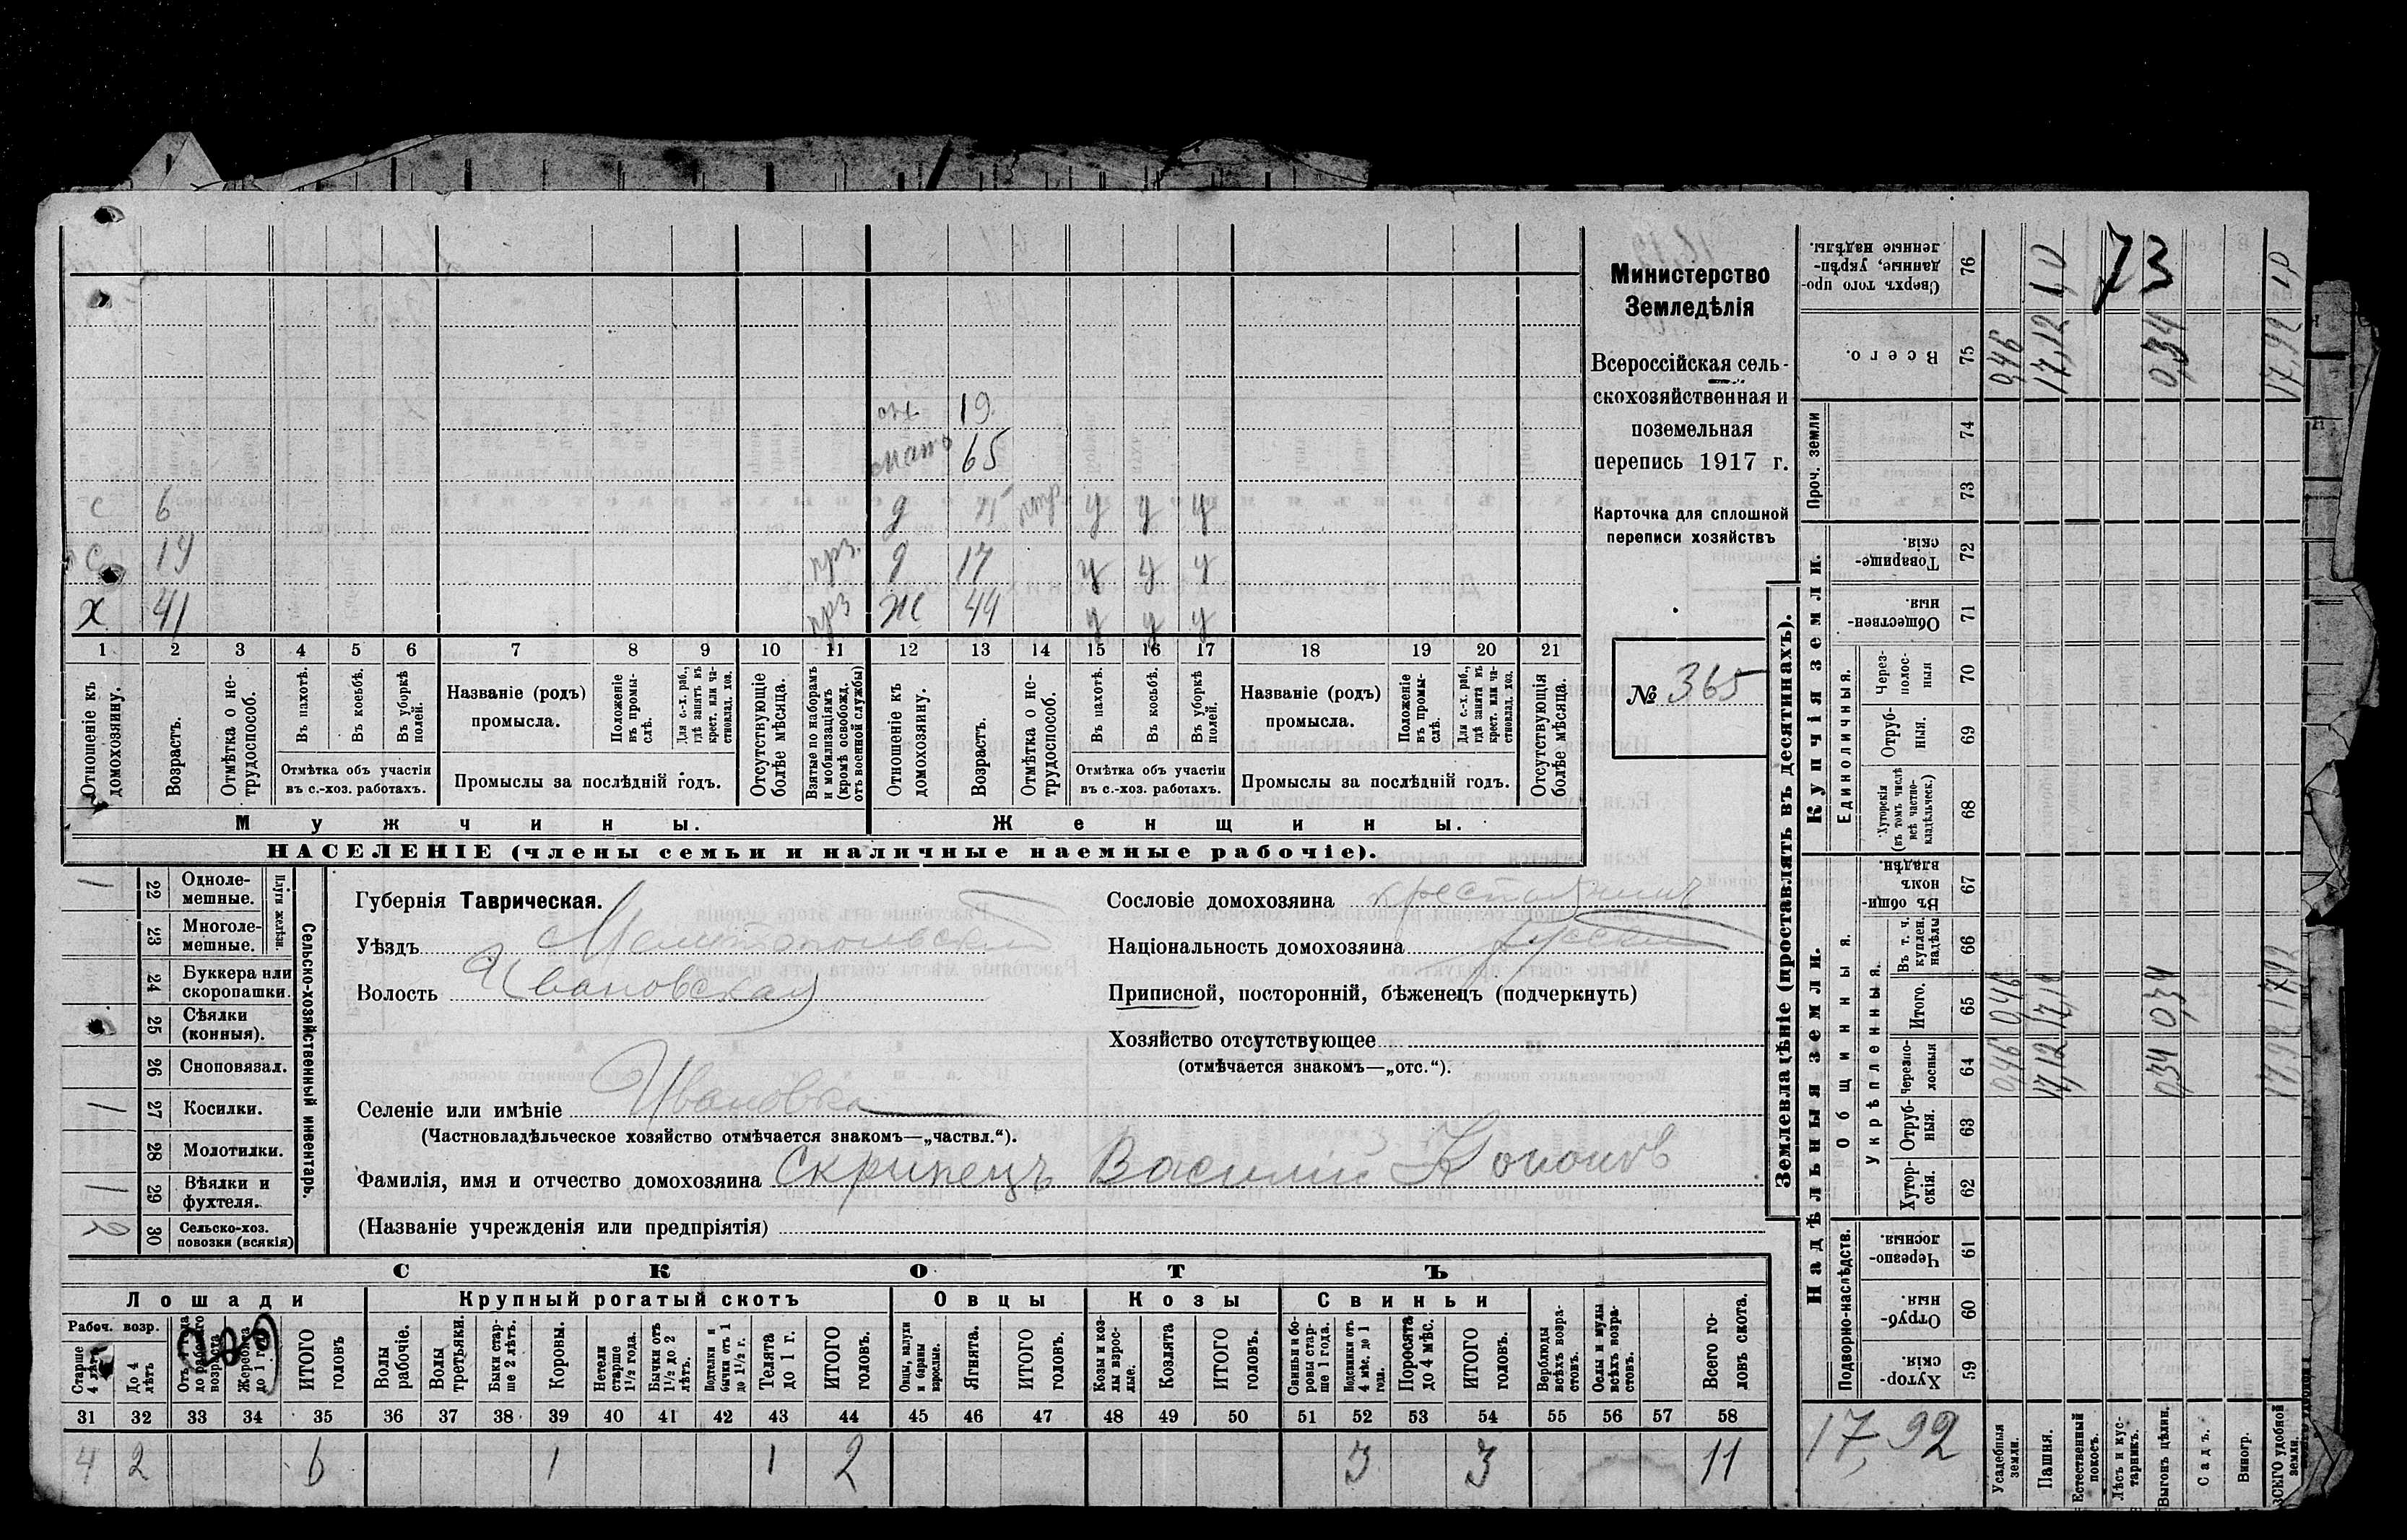 Министерство
Земледѣлія
Всероссійская сель-
скохозяйственная и
поземельная
перепись 1917 г.
Карточка для сплошной
переписи хозяйствъ
№ 365
от. 19
мать 65
с 6 д у у у
с 19 прз. д 17 у у у
х 41 прз ж 44 у у у
1 2 3 4 5 6 7 8 9 10 11 12 13 14 15 16 17 18 19 20 21
Отношеніе къ домохозяину.
Возрастъ.
Отмѣтка о не-трудоспособ.
Въ пахотѣ.
Въ косьбѣ.
Въ уборкѣ полей.
Отмѣтка объ участіи въ с.-хоз. работахъ.
Названіе (родъ) промысла.
Положеніе въ промы-слѣ.
Для с.-х. раб., гдѣ занятъ въ крест. или ча-стновлад. хоз.
Промыслы за послѣдній годъ.
Отсутствующіе болѣе мѣсяца.
Взятые по наборамъ и мобилизаціямъ (кромѣ освобожд. отъ военной службы)
Отношеніе къ домохозяину.
Возрастъ.
Отмѣтка о не-трудоспособ.
Въ пахотѣ.
Въ косьбѣ.
Въ уборкѣ полей.
Отмѣтка объ участіи въ с.-хоз. работахъ.
Названіе (родъ) промысла.
Положеніе въ промы-слѣ.
Для с.-х. раб., гдѣ занята въ крест. или ча-стновлад. хоз.
Промыслы за послѣдній годъ.
Отсутствующія болѣе мѣсяца.
Мужчины. Женщины.
НАСЕЛЕНІЕ (члены семьи и наличные наемные рабочіе).
Сельско-хозяйственный инвентарь.
Плуги желѣзн.
1 22 Одноле-мешные.
23 Многоле-мешные.
24 Буккера или скоропашки.
25 Сѣялки (конныя).
26 Сноповязал.
1 27 Косилки.
28 Молотилки.
1 29 Вѣялки и фухтеля.
2 30 Сельско-хоз. повозки (всякія)
Губернія Таврическая.
Уѣздъ Мелитопольскій
Волость Ивановская
Селеніе или имѣніе Ивановка
(Частновладѣльческое хозяйство отмѣчается знакомъ—„частвл.“).
Фамилія, имя и отчество домохозяина Скрипецъ Василій Кононов
(Названіе учрежденія или предпріятія)
Сословіе домохозяина крестьянинъ
Національность домохозяина русскій
Приписной, посторонній, бѣженецъ (подчеркнуть)
Хозяйство отсутствующее
(отмѣчается знакомъ—„отс.“).
СКОТЪ
Лошади Крупный рогатый скотъ Овцы Козы Свиньи
Рабоч. возр.
Старше 4 лѣтъ
До 4 лѣтъ
Отъ 1 года до рабочаго возраста
Жеребята до 1 года
ИТОГО головъ
Волы рабочіе.
Волы третьяки.
Быки стар-ше 2 лѣтъ.
Коровы.
Нетели старше 1½ года.
Бычки отъ 1½ до 2 лѣтъ.
Подтелки и бычки отъ 1 до 1½ г.
Телята до 1 г.
ИТОГО головъ.
Овцы, валухи и бараны взрослые.
Ягнята.
ИТОГО головъ.
Козы и коз-лы взрос-лые.
Козлята
ИТОГО головъ.
Свиньи и бо-ровы стар-ше 1 года.
Подсвинки отъ 4 мѣс. до 1 года.
Поросята до 4 мѣс.
ИТОГО головъ.
Верблюды всѣхъ возра-стовъ.
Ослы и мулы всѣхъ возра-стовъ.
Всего го-ловъ скота.
31 32 33 34 35 36 37 38 39 40 41 42 43 44 45 46 47 48 49 50 51 52 53 54 55 56 57 58
4 2 6 1 1 2 3 3 11
Землевладѣніе (проставлять въ десятинахъ).
Купчія земли.
Надѣльныя земли.
Проч. земли
Единоличныя.
Общинныя.
Укрѣпленныя.
Подворно-наслѣдств.
Сверхъ того про-данные, укрѣп-ленные надѣлы. 76 1,0 73
Всего. 75 0,46 17,12 0,34 17,92
74
73
Товарище-скія. 72
Обществен-ныя 71
Через-полос-ныя 70
Отруб-ныя. 69
Хуторскія (въ томъ числѣ всѣ частно-владѣльческ.) 68
Въ общи-номъ владѣн. 67
Въ т. ч. куплен. надѣлы 66
Итого. 65 0,46 17,12 0,34 17,92
Черезпо-лосныя 64 0,46 17,12 0,34 17,92
Отруб-ныя. 63
Хутор-скія. 62
Черезпо-лосныя. 61
Отруб-ныя. 60
Хутор-скія 59
17,92
Усадебныя земли.
Пашня.
Естественный покосъ.
Лѣсъ и кус-тарникъ.
Выгонъ цѣлин.
Садъ.
Виногр.
ВСЕГО удобной земли.